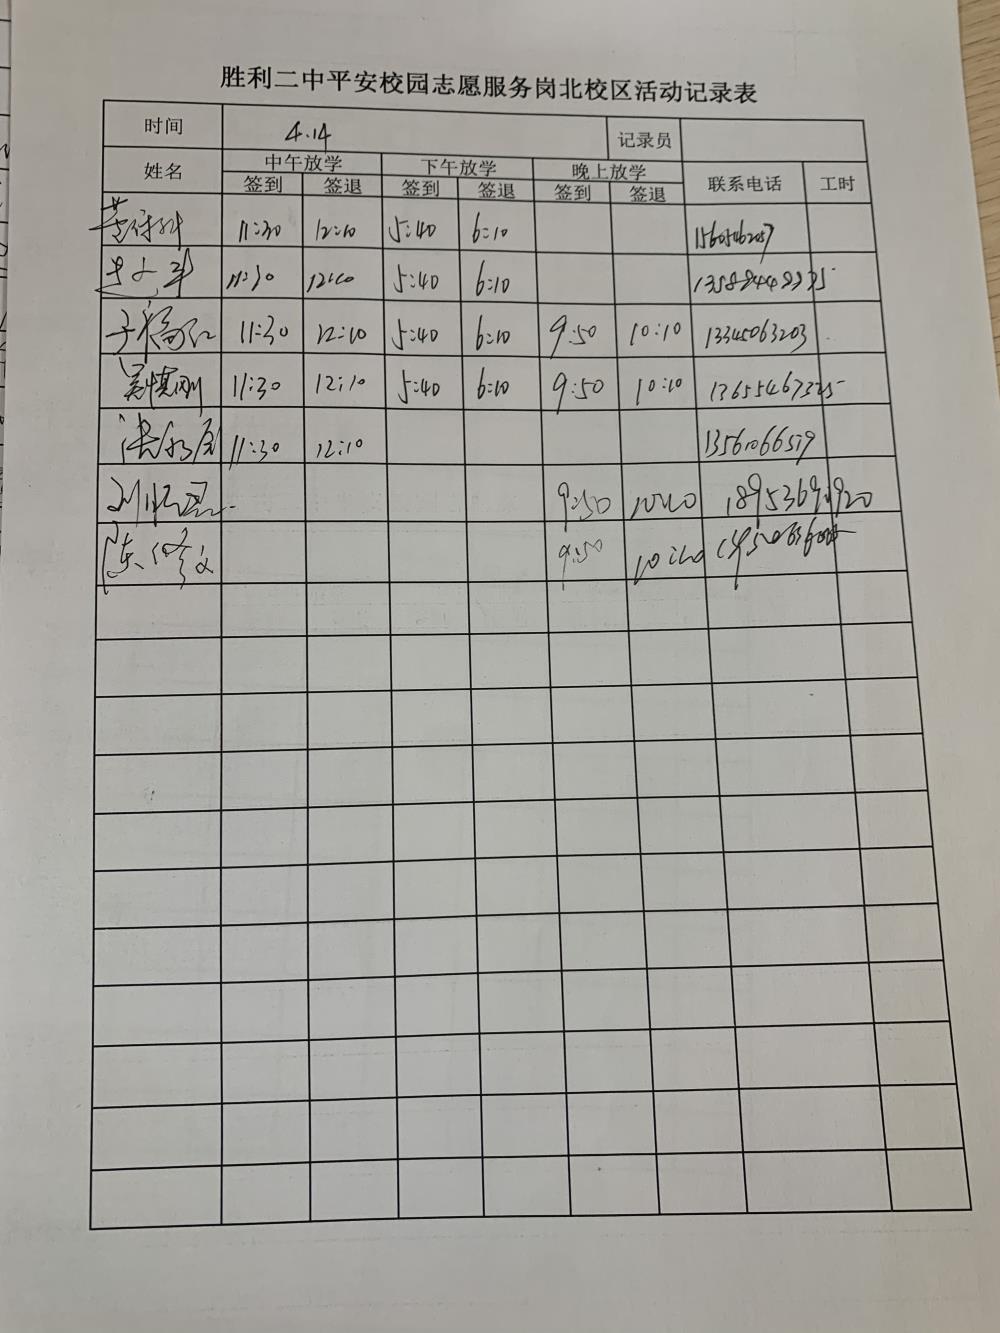 胜利二中平安校园志愿服务岗北校区活动记录表
时间 4.14 记录员
姓名 中午放学 下午放学 晚上放学 联系电话 工时
签到 签退 签到 签退 签到 签退
11:30 12:10 5:40 6:10
11:30 12:10 5:40 6:10
11:30 12:10 5:40 6:10 9:50 10:10 13345063203
11:30 12:10 5:40 6:10 9:50 10:10 13655467325
11:30 12:10 13561066519
9:50 10:10
陈修文 9:50 10:10